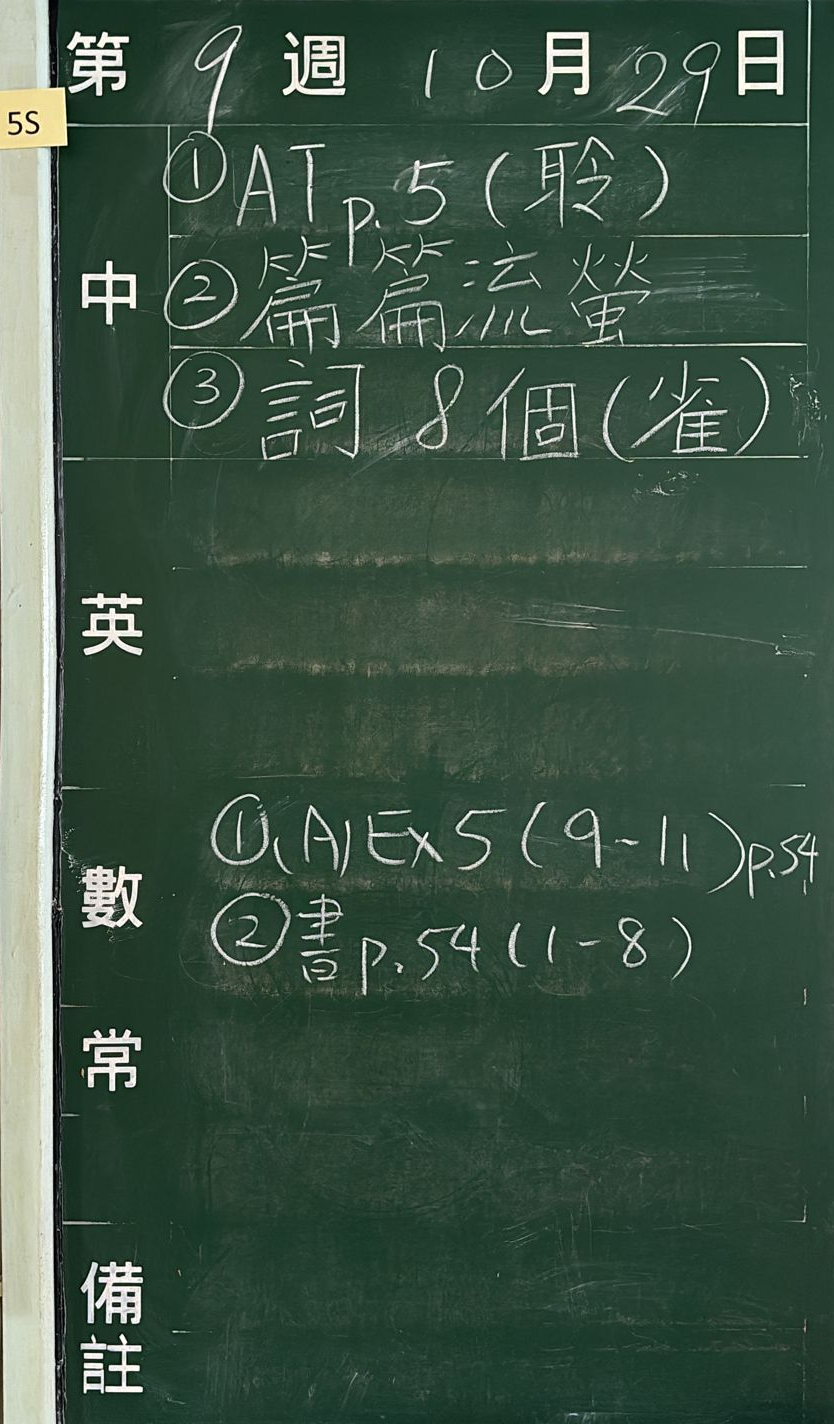 第 9 週 10月29日
5S
中
①AT p.5(聆)
②篇篇流螢
③詞8個(雀)
英
數
①(A)Ex5(9-11)p.54
②書p.54(1-8)
常
備註